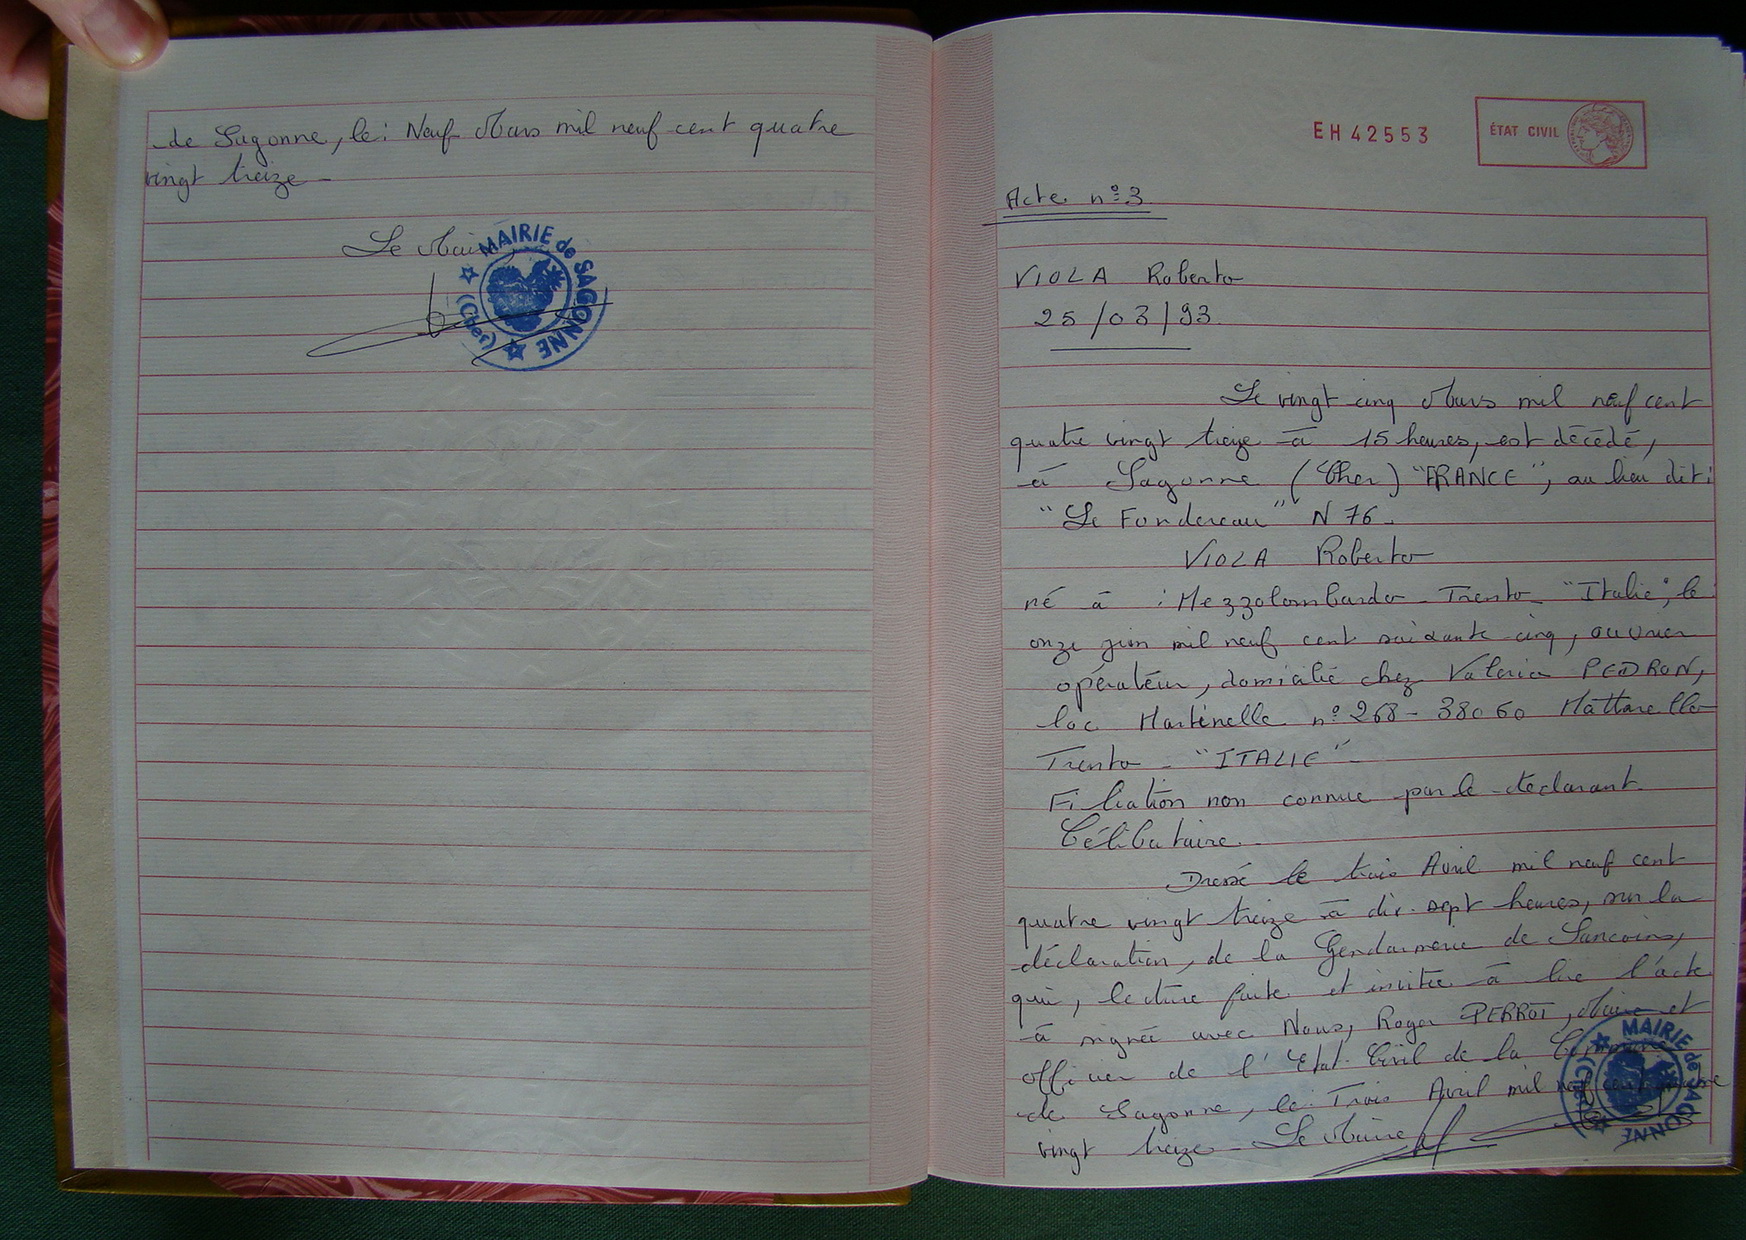 de Sagonne, le: Neuf Mars mil neuf cent quatre
vingt treize -
Le Maire
MAIRIE de SAGONNE (Cher)
EH 42553
ÉTAT CIVIL
Acte n° 3
VIOLA Roberto
25/03/93
Le vingt cinq Mars mil neuf cent
quatre vingt treize à 15 heures, est décédé,
à Sagonne (Cher) "FRANCE", au lieu dit:
"Le Fondereau" N 76.
VIOLA Roberto
né à : Mezzolombardo - Trento - "Italie", le
onze juin mil neuf cent soixante cinq, ouvrier
opérateur, domicilié chez Valeria PEDRON,
loc Martinelle n° 268 - 38060 Mattarello
Trento - "ITALIE" -
Filiation non connue par le déclarant
Célibataire.
Dressé le trois Avril mil neuf cent
quatre vingt treize à dix-sept heures, sur la
déclaration, de la Gendarmerie de Sancoins,
qui, lecture faite et invitée à lire l'acte
à signée avec Nous, Roger PERROT, Maire et
officier de l'Etat Civil de la Commune
de Sagonne, le: Trois Avril mil neuf cent quatre
vingt treize - Le Maire
MAIRIE de SAGONNE (Cher)